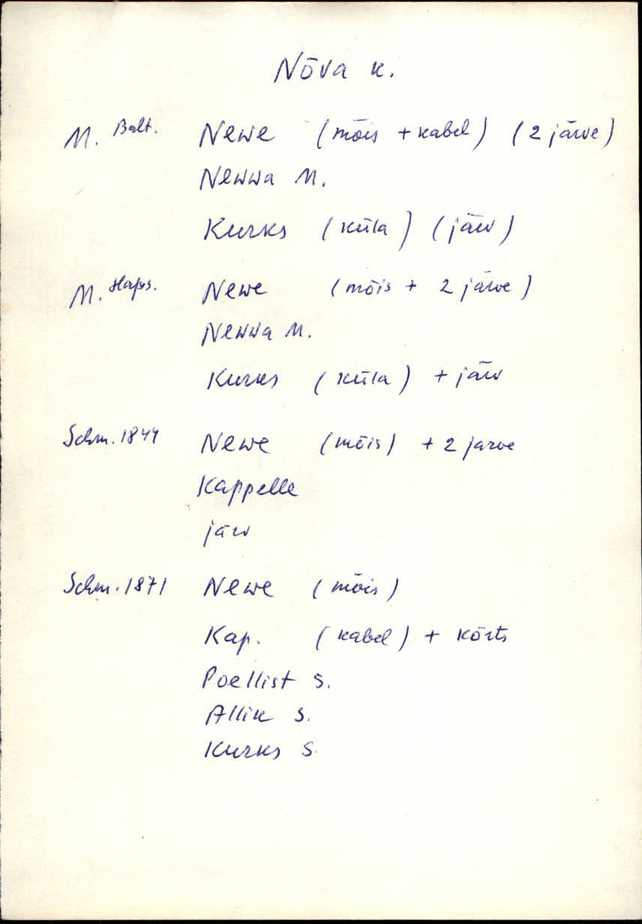 Nõva k.
M. Balt. Newe (mõis + kabel) (2 järve)
Newwa M.
Kurks (küla) (järv)
M. Haps. Newe (mõis + 2 järve)
Newwa M.
Kurks (küla) + järv
Schm. 1844 Newe (mõis) + 2 jarve
Kappelle
järv
Schm. 1871 Newe (mõis)
Kap. (kabel) + kõrts
Poellist S.
Allik S.
Kurks S.